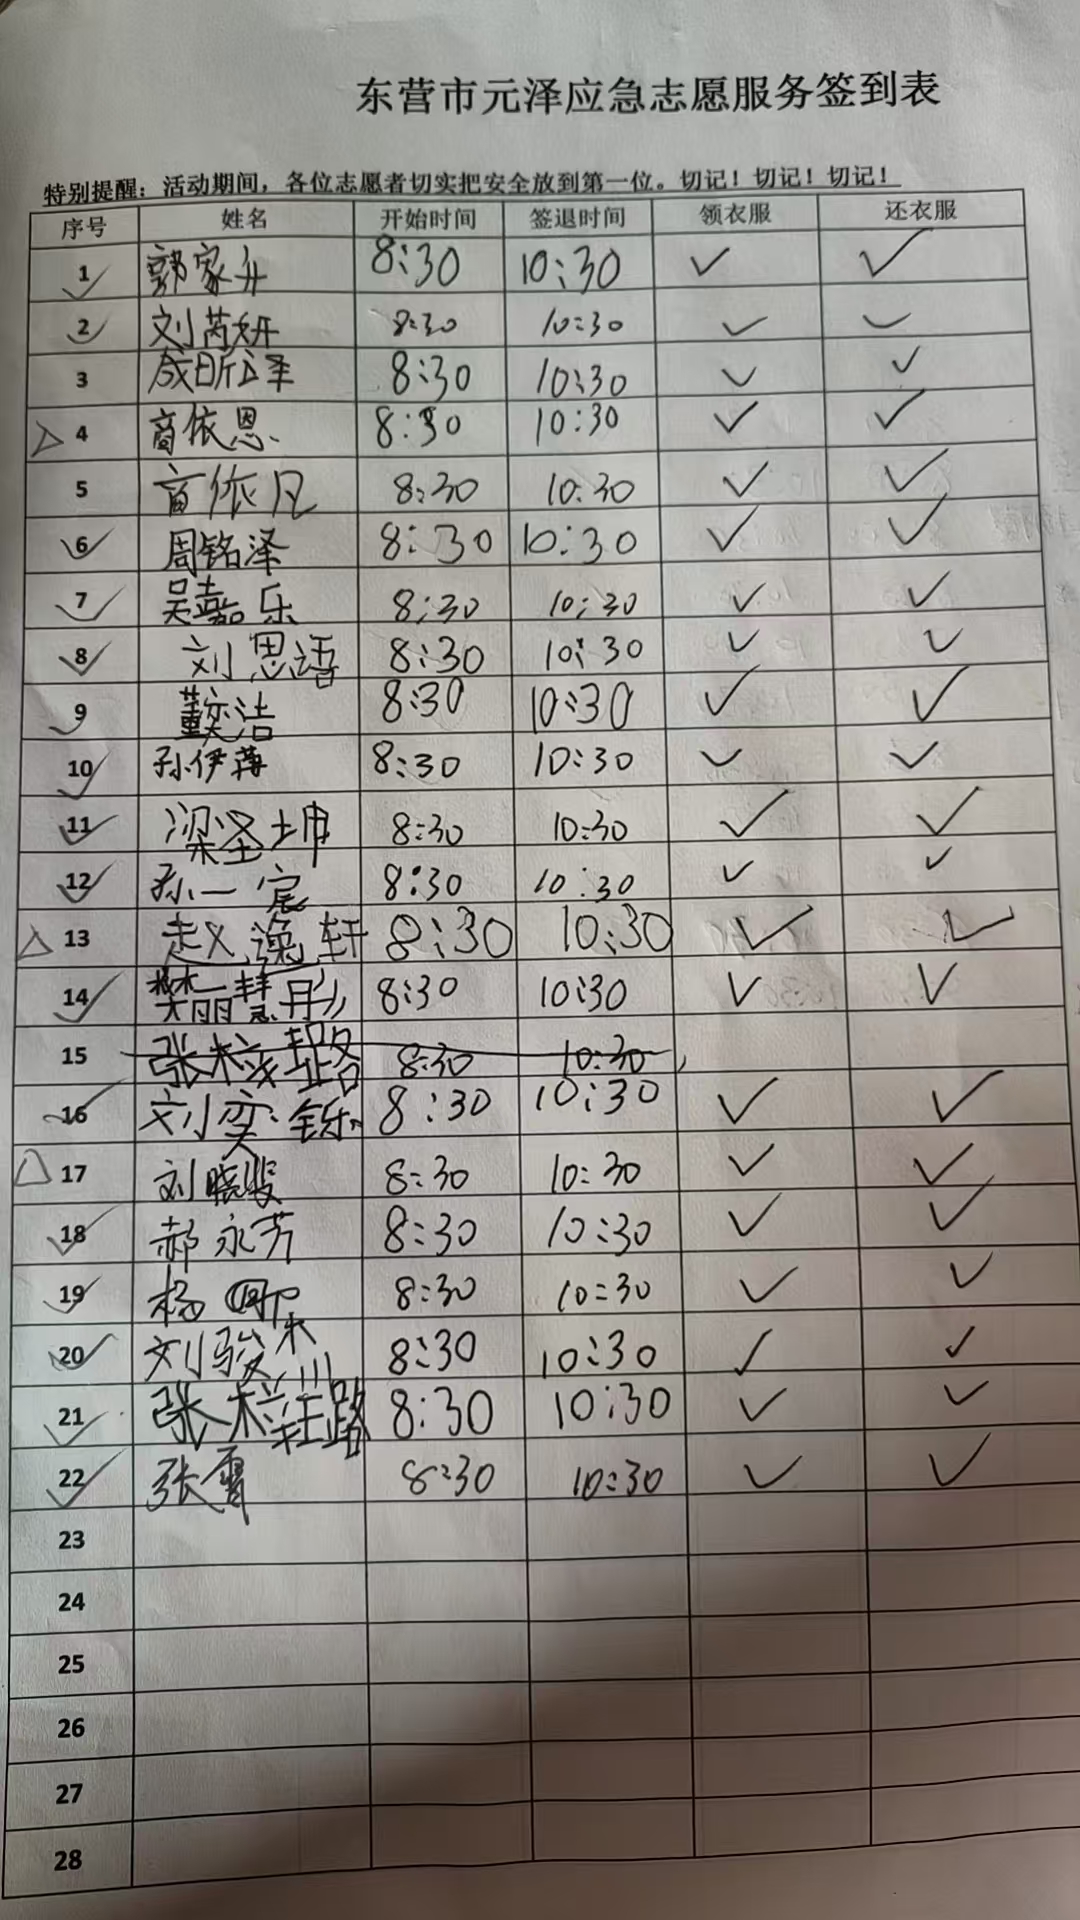 东营市元泽应急志愿服务签到表
特别提醒：活动期间，各位志愿者切实把安全放到第一位。切记！切记！切记！
序号 姓名 开始时间 签退时间 领衣服 还衣服
1 郭家升 8:30 10:30 ✓ ✓
2 刘芮妍 8:30 10:30 ✓ ✓
3 成昕泽 8:30 10:30 ✓ ✓
△ 4 商依恩 8:30 10:30 ✓ ✓
5 商依凡 8:30 10:30 ✓ ✓
6 周铭泽 8:30 10:30 ✓ ✓
7 吴嘉乐 8:30 10:30 ✓ ✓
8 刘思语 8:30 10:30 ✓ ✓
9 董奕洁 8:30 10:30 ✓ ✓
10 孙伊 8:30 10:30 ✓ ✓
11 梁圣坤 8:30 10:30 ✓ ✓
12 孙一宸 8:30 10:30 ✓ ✓
△ 13 赵逸轩 8:30 10:30 ✓ ✓
14 樊丽慧彤 8:30 10:30 ✓ ✓
15 张 路 8:30 10:30
16 刘奕铄 8:30 10:30 ✓ ✓
△ 17 刘晓斐 8:30 10:30 ✓ ✓
18 郝永芳 8:30 10:30 ✓ ✓
19 杨 8:30 10:30 ✓ ✓
20 刘骏 8:30 10:30 ✓ ✓
21 张 路 8:30 10:30 ✓ ✓
22 张霄 8:30 10:30 ✓ ✓
23
24
25
26
27
28